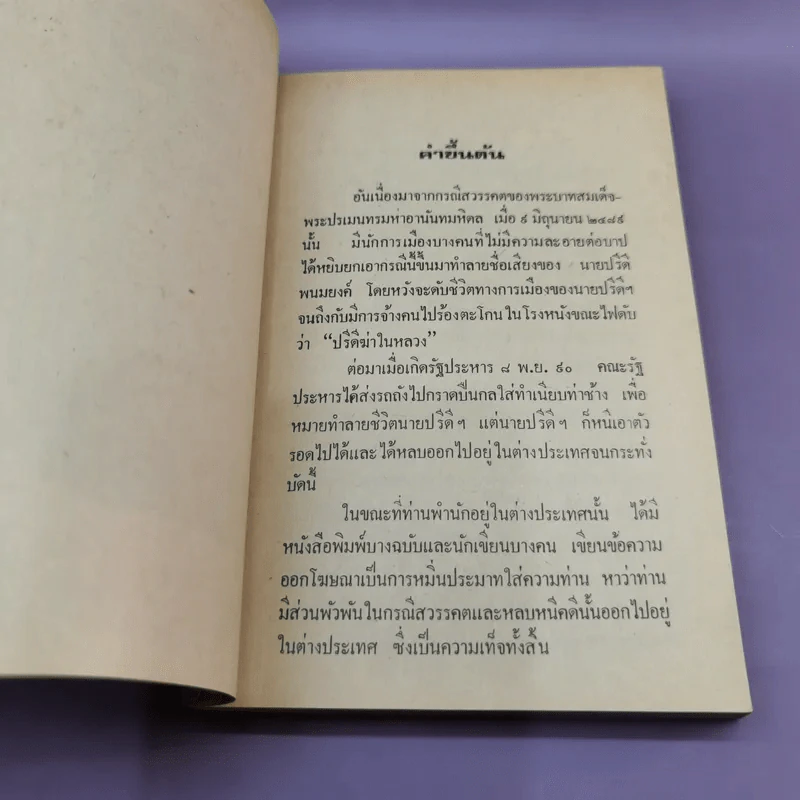 คำขึ้นต้น
อันเนื่องมาจากกรณีสวรรคตของพระบาทสมเด็จ-
พระปรเมนทรมหาอานันทมหิดล เมื่อ ๙ มิถุนายน ๒๔๘๙
นั้น มีนักการเมืองบางคนที่ไม่มีความละอายต่อบาป
ได้หยิบยกเอากรณีนี้ขึ้นมาทำลายชื่อเสียงของ นายปรีดี
พนมยงค์ โดยหวังจะดับชีวิตทางการเมืองของนายปรีดีฯ
จนถึงกับมีการจ้างคนไปร้องตะโกนในโรงหนังขณะไฟดับ
ว่า “ปรีดีฆ่าในหลวง”
ต่อมาเมื่อเกิดรัฐประหาร ๘ พ.ย. ๙๐ คณะรัฐ
ประหารได้ส่งรถถังไปกราดปืนกลใส่ทำเนียบท่าช้าง เพื่อ
หมายทำลายชีวิตนายปรีดีฯ แต่นายปรีดีฯ ก็หนีเอาตัว
รอดไปได้และได้หลบออกไปอยู่ในต่างประเทศจนกระทั่ง
บัดนี้
ในขณะที่ท่านพำนักอยู่ในต่างประเทศนั้น ได้มี
หนังสือพิมพ์บางฉบับและนักเขียนบางคน เขียนข้อความ
ออกโฆษณาเป็นการหมิ่นประมาทใส่ความท่าน หาว่าท่าน
มีส่วนพัวพันในกรณีสวรรคตและหลบหนีคดีนั้นออกไปอยู่
ในต่างประเทศ ซึ่งเป็นความเท็จทั้งสิ้น